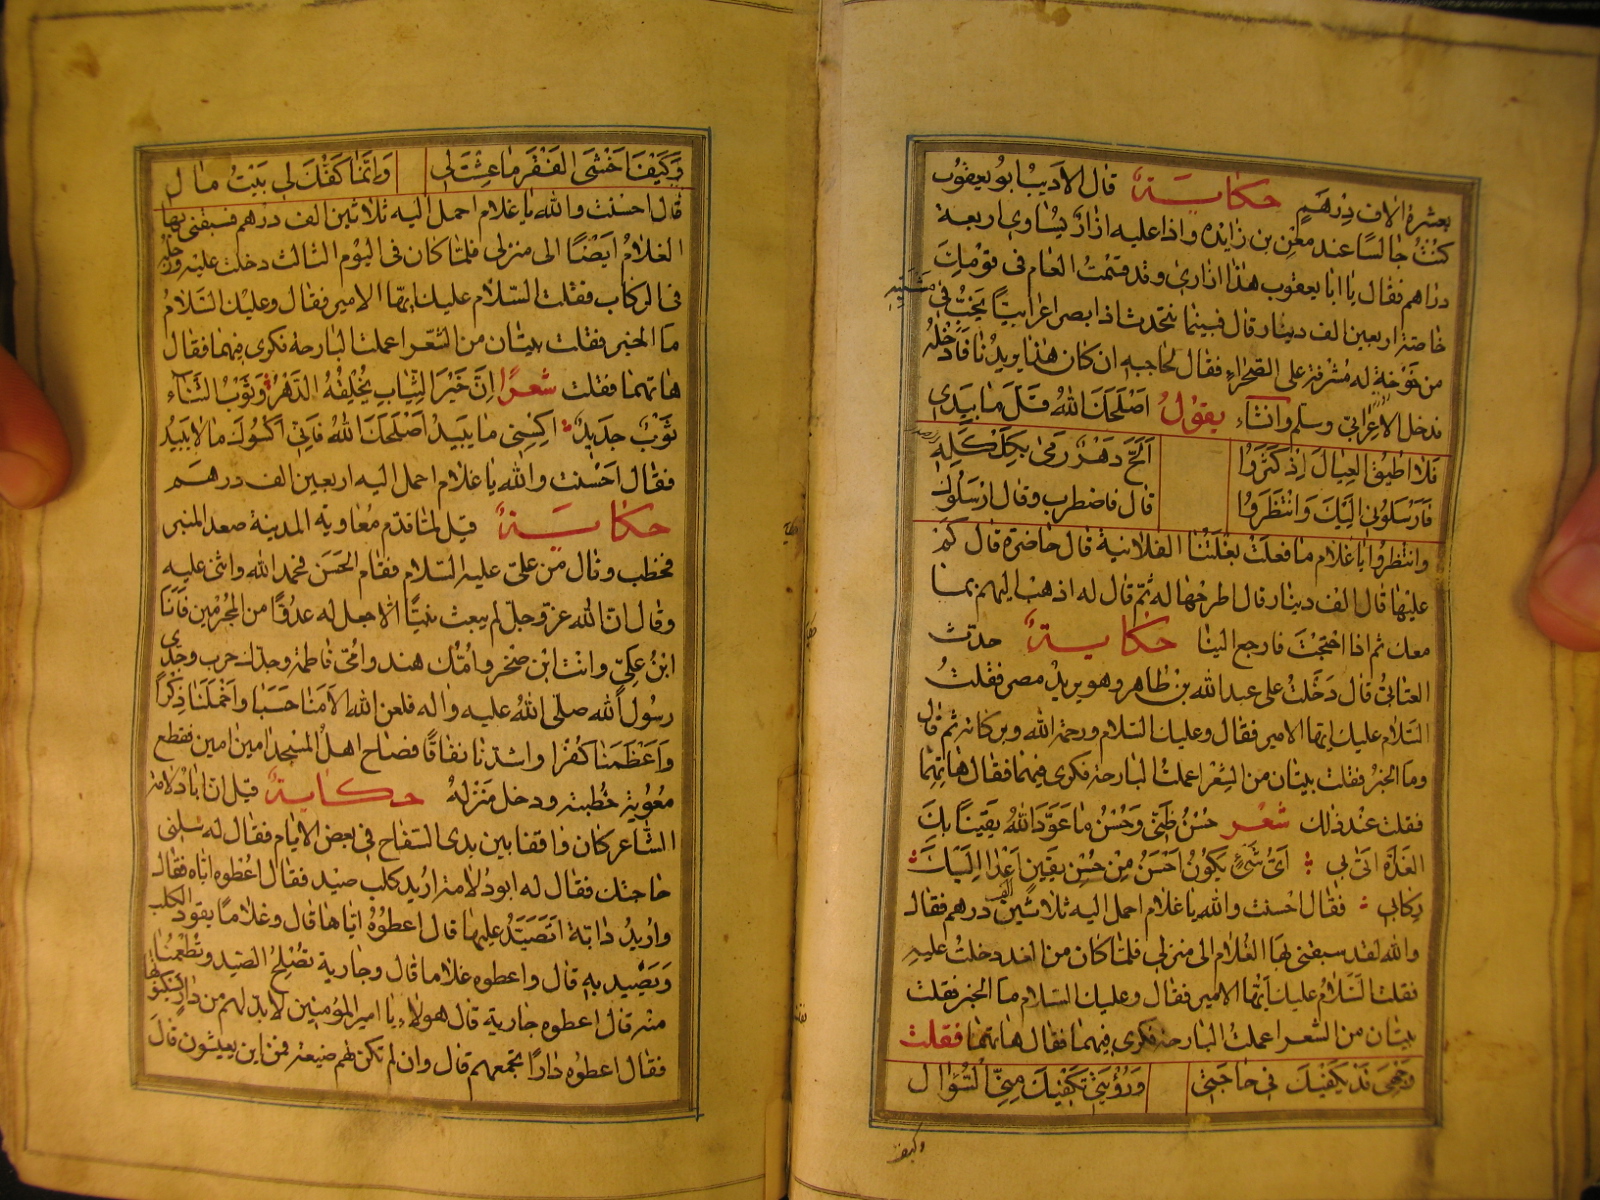 بعشرة الاف درهم حكاية قال الاديب ابو يعقوب
كنت جالسا عند معن بن زايده واذا عليه ازار يساوى اربعة
دراهم فقال يا ابا يعقوب هذا ازارى وقد قسمت العام فى قومك
خاصة اربعين الف دينار قال فبينما نتحدث اذا بصر اعرابيا يخب فى مشيته
من خوخة له مشرفة على الصحراء فقال لحاجبه ان كان هذا يريدنا فادخله
فدخل الاعرابى وسلم وانشاء يقول اصلحك الله قل ما بيدى
فلا اطيق العيال اذ كثروا الح دهر رمى بكلكله
فارسلونى اليك وانتظروا قال فاضطرب وقال ارسلوك
وانتظروا يا غلام ما فعلت بغلتنا الفلانية قال حاضرة قال كم
عليها قال الف دينار قال اطرحها له ثم قال له اذهب اليهم بما
معك ثم اذا احتجت فارجع الينا حكاية حدث
العتابى قال دخلت على عبد الله بن طاهر وهو يريد مصر فقلت
السلام عليك ايها الامير فقال وعليك السلام ورحمة الله وبركاته ثم قال
وما الخبر فقلت بيتان من الشعر اعملت البارحة فكرى فيهما فقال هاتهما
فقلت عند ذلك شعر حسن ظنى وحسن ما عود الله يقينا بك
الغداة اتى بى اى شىء يكون احسن من حسن يقين اغدا اليك
ركابى فقال احسنت والله يا غلام احمل اليه ثلاثين الف درهم فقال
والله لقد سبقنى بها الغلام الى منزلى فلما كان من الغد دخلت عليه
فقلت السلام عليك ايها الامير فقال وعليك السلام ما الخبر فقلت
بيتان من الشعر اعملت البارحة فكرى فيهما فقال هاتهما فقلت
يكفيك فى حاجتى ورؤيتى تكفيك منى السؤال
وكيف
وكيف اخشى الفقر ما عشت لى وانما كفك لى بيت مال
قال احسنت والله يا غلام احمل اليه ثلاثين الف درهم فسبقنى بها
الغلام ايضا الى منزلى فلما كان فى اليوم الثالث دخلت عليه ورجله
فى الركاب فقلت السلام عليك ايها الامير فقال وعليك السلام
ما الخبر فقلت بيتان من الشعر اعملت البارحة فكرى فيهما فقال
هاتهما فقلت شعرا ان خير الثياب يخلفه الدهر وثوب الثناء
ثوب جديد اكسنى ما يبيد اصلحك الله فانى اكسوك ما لا يبيد
فقال احسنت والله يا غلام احمل اليه اربعين الف درهم
حكاية قيل لما قدم معاوية المدينة صعد المنبر
فخطب وقال من على عليه السلام فقام الحسن فحمد الله واثنى عليه
وقال ان الله عز وجل لم يبعث نبيا الا جعل له عدوا من المجرمين فانا
ابن على وانت ابن صخر وامك هند وامى فاطمة وجدك حرب وجدى
رسول الله صلى الله عليه واله فلعن الله الامنا حسبا واخملنا ذكرا
واعظمنا كفرا واشدنا نفاقا فصاح اهل المسجد امين امين فقطع
معوية خطبته ودخل منزله حكاية قيل ان ابا دلامة
الشاعر كان واقفا بين يدى السفاح فى بعض الايام فقال له سلنى
حاجتك فقال له ابو دلامة اريد كلب صيد فقال اعطوه اياه فقال
واريد دابة اتصيد عليها قال اعطوه اياها قال وغلاما يقود الكلب
ويصيد به قال واعطوه غلاما قال وجارية تصلح الصيد وتطعمنا
منه قال اعطوه جارية قال هولاء يا امير المومنين لا بد لهم من دار يسكنونها
فقال اعطوه دارا تجمعهم قال وان لم تكن لهم ضيعة فمن اين يعيشون قال